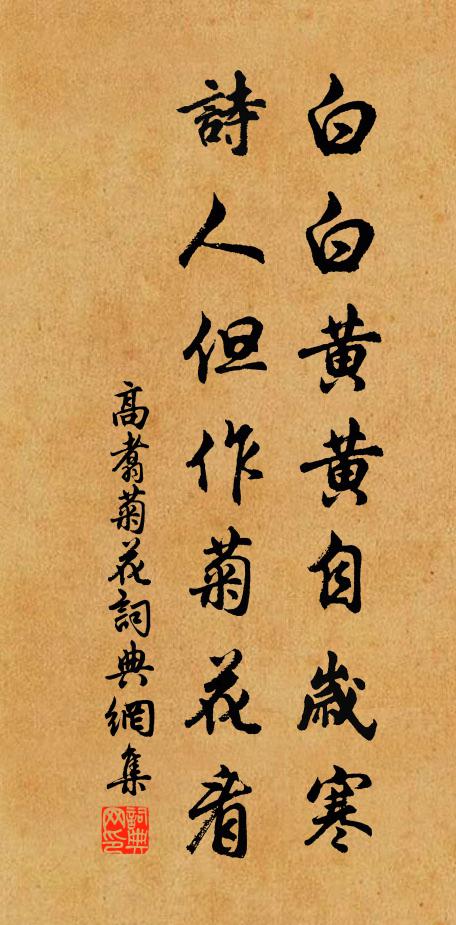 白白黄黄自歲寒
詩人但作菊花看
高翥菊花詞典網集
詞典
网印